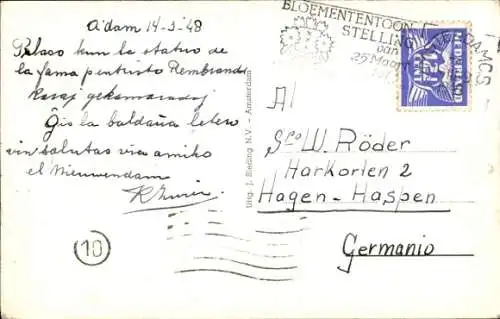 A'dam 14-3-48
Palaso kun la statuo de
la fama pentristo Rembrandt
Karaj gekamaradoj
Ĝis la baldaŭa letero
vin salutas via amiko
el Nieuwendam
10
Uitg. J. Sleding N.V. - Amsterdam
BLOEMENTENTOON
STELLING
van
25 Maart
NEDERLAND
CENT
Al
Sro W. Röder
Harkorten 2
Hagen-Haspen
Germanio